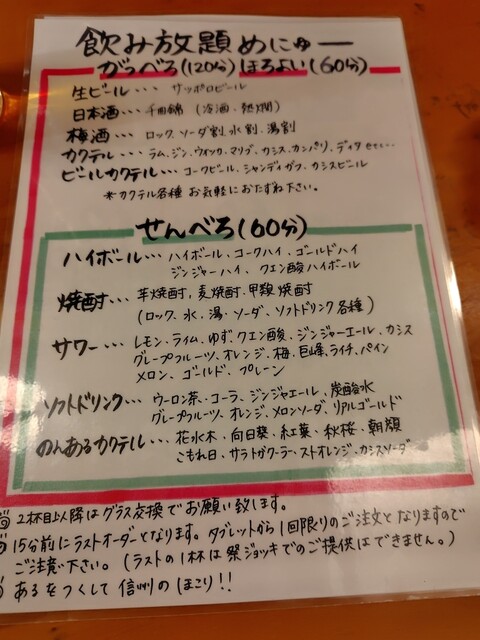 飲み放題めにゅー
がっべろ(120分) ほろよい(60分)
生ビール… サッポロビール
日本酒… 千曲錦 (冷酒・熱燗)
梅酒… ロック、ソーダ割、水割、湯割
カクテル… ラム、ジン、ウォッカ、マリブ、カシス、カンパリ、ディタ etc...
ビールカクテル… コークビール、シャンディガフ、カシスビール
*カクテル各種 お気軽におたずね下さい。
せんべろ(60分)
ハイボール… ハイボール、コークハイ、ゴールドハイ
ジンジャーハイ、クエン酸ハイボール
焼酎… 芋焼酎、麦焼酎、甲類焼酎
(ロック、水、湯・ソーダ、ソフトドリンク各種)
サワー… レモン、ライム、ゆず、クエン酸、ジンジャーエール、カシス
グレープフルーツ、オレンジ、梅、巨峰、ライチ、パイン
メロン、ゴールド、プレーン
ソフトドリンク… ウーロン茶、コーラ、ジンジャエール、炭酸水
グレープフルーツ、オレンジ、メロンソーダ、リアルゴールド
のんあるカクテル… 花水木・向日葵・紅葉・秋桜・朝顔
こもれ日、サラトガクーラー、ストオレンジ、カシスソーダ
2杯目以降はグラス交換でお願い致します。
15分前にラストオーダーとなります。タブレットから1回限りのご注文となりますので
ご注意下さい。(ラストの1杯は祭ジョッキでのご提供はできません。)
あるをつくして信州のほこり!!